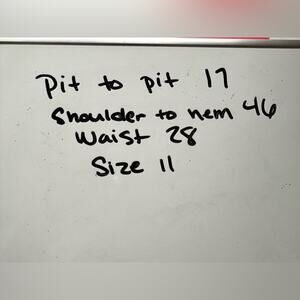 Pit to pit 17
Shoulder to hem 46
Waist 28
Size 11